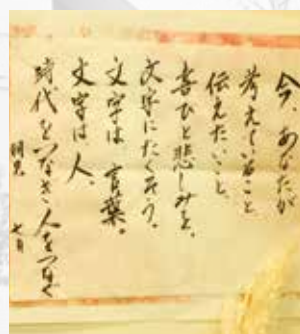 今、あなたが
考えていること
伝えたいこと、
喜びと悲しみを、
文字にたくそう。
文字は 言葉。
文字は 人。
時代をつなぎ 人をつなぐ
七月